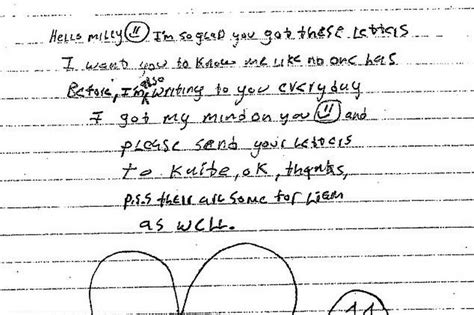 Hello milly I'm so glad you got these Letters
I want you to know me like no one has
Before, I'm also writing to you everyday
I got my mind on you and
please send your Letters
to Knite, ok, thanks,
P.S.S their are some for Liem
as well.